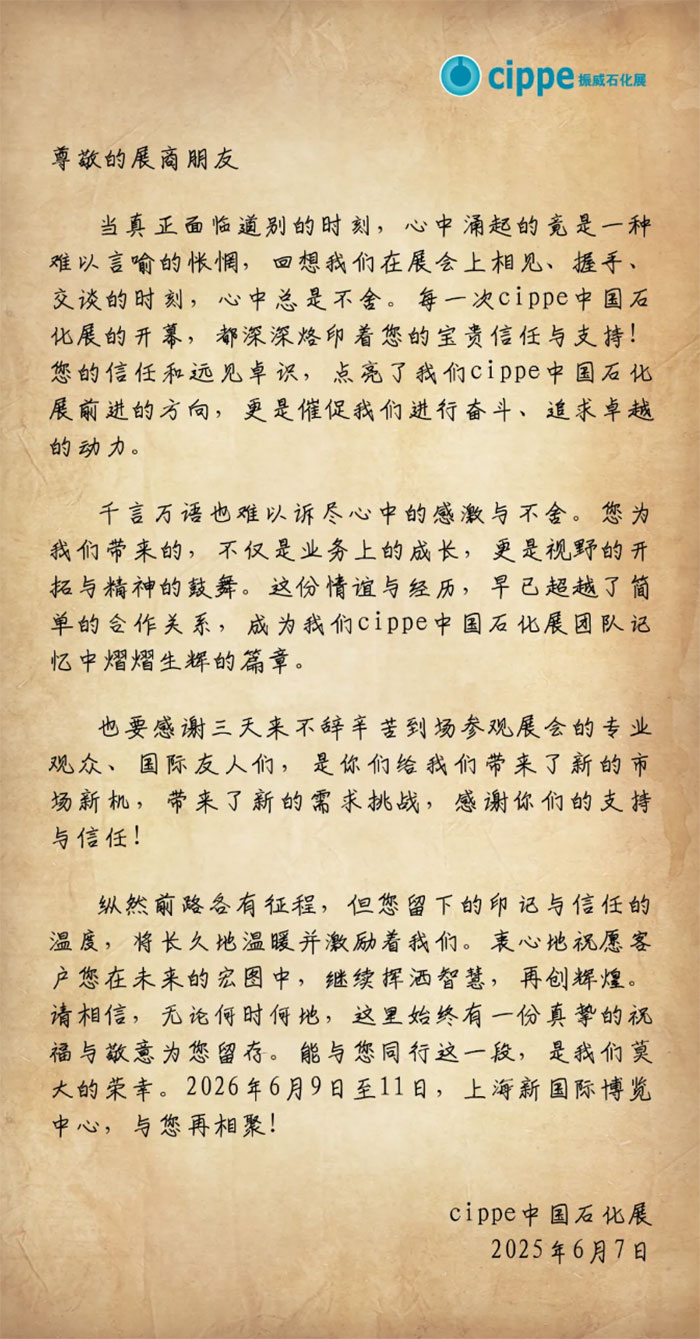 cippe 振威石化展
尊敬的展商朋友
当真正面临道别的时刻，心中涌起的竟是一种
难以言喻的怅惘，回想我们在展会上相见、握手、
交谈的时刻，心中总是不舍。每一次cippe中国石
化展的开幕，都深深烙印着您的宝贵信任与支持！
您的信任和远见卓识，点亮了我们cippe中国石化
展前进的方向，更是催促我们进行奋斗、追求卓越
的动力。
千言万语也难以诉尽心中的感激与不舍。您为
我们带来的，不仅是业务上的成长，更是视野的开
拓与精神的鼓舞。这份情谊与经历，早已超越了简
单的合作关系，成为我们cippe中国石化展团队记
忆中熠熠生辉的篇章。
也要感谢三天来不辞辛苦到场参观展会的专业
观众、国际友人们，是你们给我们带来了新的市
场新机，带来了新的需求挑战，感谢你们的支持
与信任！
纵然前路各有征程，但您留下的印记与信任的
温度，将长久地温暖并激励着我们。衷心地祝愿客
户您在未来的宏图中，继续挥洒智慧，再创辉煌。
请相信，无论何时何地，这里始终有一份真挚的祝
福与敬意为您留存。能与您同行这一段，是我们莫
大的荣幸。2026年6月9日至11日，上海新国际博览
中心，与您再相聚！
cippe中国石化展
2025年6月7日